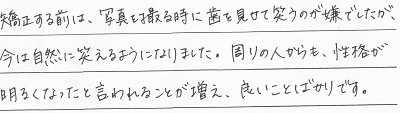 矯正する前は、写真を撮る時に歯を見せて笑うのが嫌でしたが、
今は自然に笑えるようになりました。周りの人からも、性格が
明るくなったと言われることが増え、良いことばかりです。